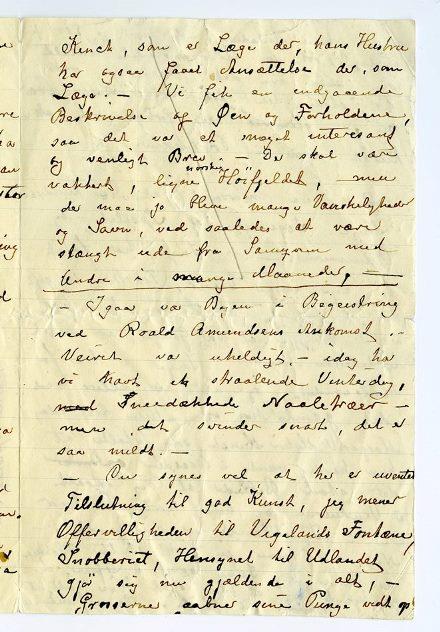 Kinck, som er Læge der, hans Hustru
har ogsaa faaet Ansættelse der, som
Læge. — Vi fik en indgaaende
Beskrivelse og Øen og Forholdene,
saa det var et meget interesant
og venligt Brev. — Der skal være
vakkert, ligne norske Höifjeldet, — men
der maa jo blive mange Vanskeligheder
og Savn, ved saaledes at være
stængt ude fra Samqvem med
Andre i mange Maaneder, —
— Igaar var Byen i Begeistring
ved Roald Amundsens Ankomst. —
Veiret var uheldigt. — idag har
vi havt et straalende Vinterdag,
med Sneedækkede Naaletræer —
men det svinder snart, det er
saa mildt. —
— Du synes vel, at her er uventet
Tilslutning til god Kunst, jeg mener
Offervilligheden til Vigelands Fontæne,
Snobberiet, Hensynet til Udlandet
gjör sig nu gjældende i alt, —
Grosserne aabner sine Punge vidt op